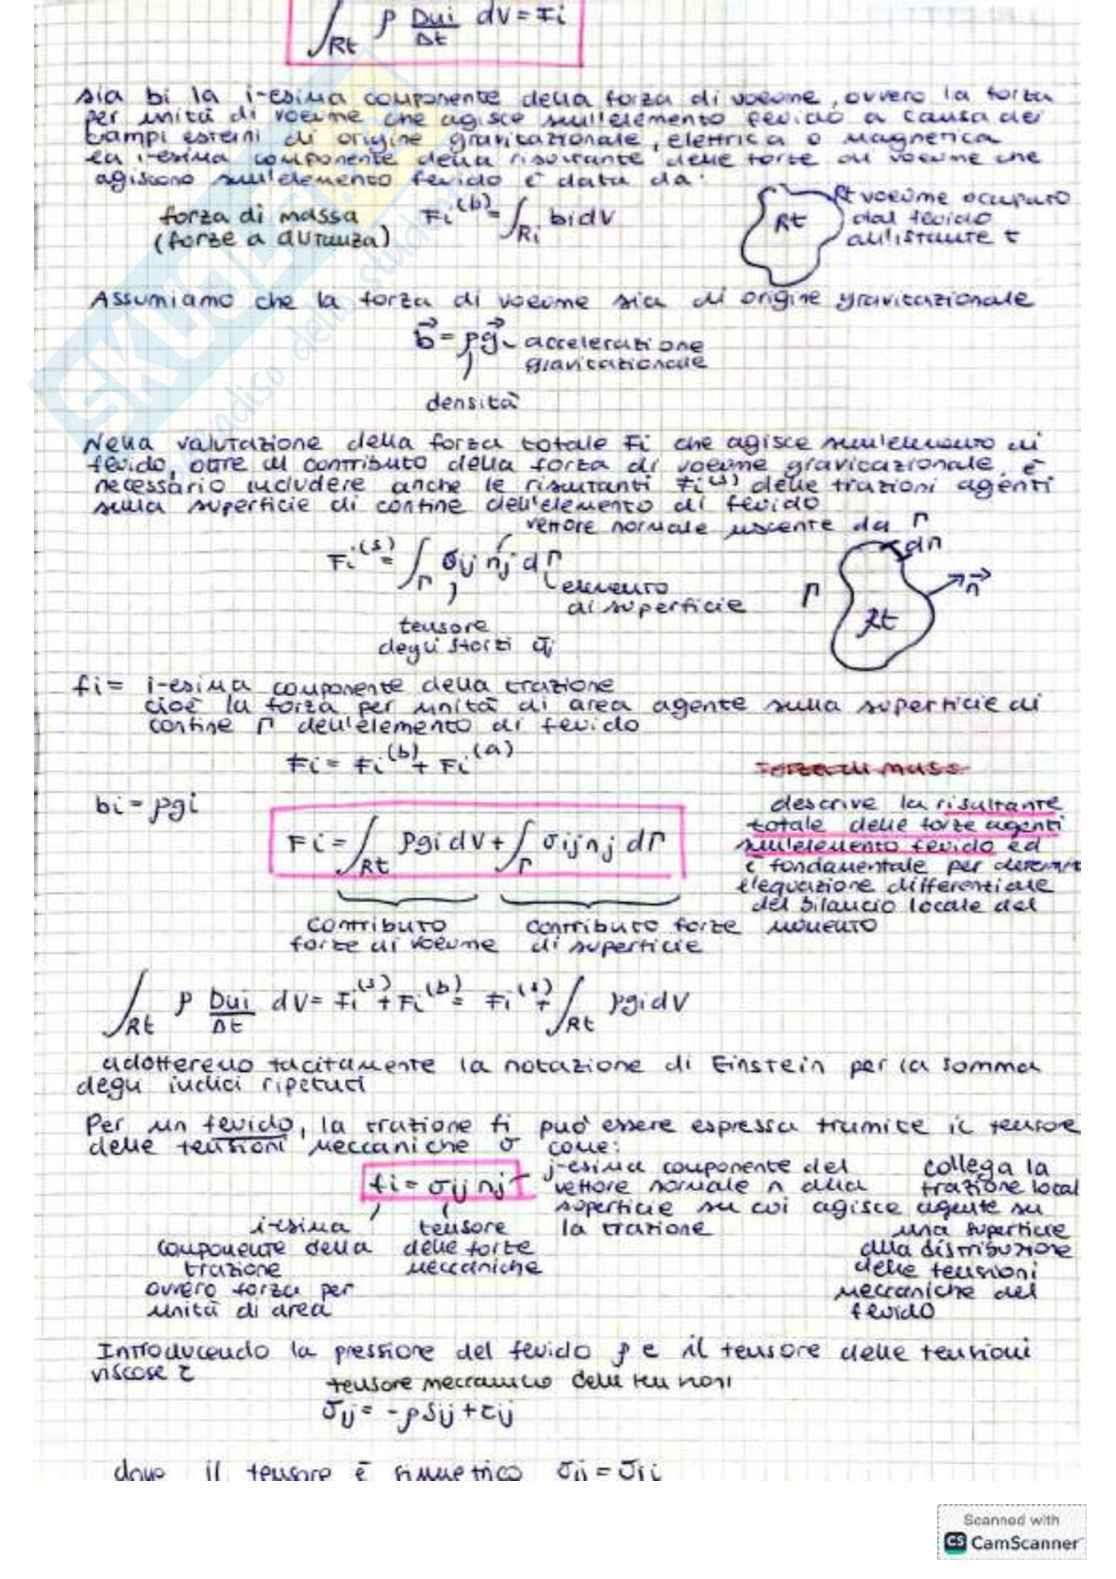 ∫Rt ρ Dui/Dt dV = Fi
sia bi la i-esima componente della forza di volume, ovvero la forza
per unità di volume che agisce sull'elemento fluido a causa dei
campi esterni di origine gravitazionale, elettrica o magnetica
la i-esima componente della risultante delle forze di volume che
agiscono sull'elemento fluido è data da:
forza di massa
(forze a distanza)
Fi(b) = ∫Ri bidV
Rt
Rt volume occupato
dal fluido
all'istante t
Assumiamo che la forza di volume sia di origine gravitazionale
b = ρg accelerazione
gravitazionale
densità
Nella valutazione della forza totale Fi che agisce sull'elemento di
fluido, oltre al contributo della forza di volume gravitazionale, è
necessario includere anche le risultanti Fi(s) delle trazioni agenti
sulla superficie di confine dell'elemento di fluido
vettore normale uscente da Γ
Fi(s) = ∫Γ σij nj dΓ
elemento
di superficie
tensore
degli sforzi σij
Γ
dΓ
n
Rt
fi = i-esima componente della trazione
cioè la forza per unità di area agente sulla superficie di
confine Γ dell'elemento di fluido
Fi = Fi(b) + Fi(a)
forza di mass
bi = ρgi
Fi = ∫Rt ρgi dV + ∫Γ σij nj dΓ
descrive la risultante
totale delle forze agenti
sull'elemento fluido ed
è fondamentale per
l'equazione differenziale
del bilancio locale del
momento
contributo
forze di volume
contributo forze
di superficie
∫Rt ρ Dui/Dt dV = Fi(s) + Fi(b) = Fi(s) + ∫Rt ρgidV
adotteremo tacitamente la notazione di Einstein per la somma
degli indici ripetuti
Per un fluido, la trazione fi può essere espressa tramite il tensore
delle tensioni meccaniche σ come:
fi = σij nj
j-esima componente del
vettore normale n alla
superficie su cui agisce
la trazione
collega la
trazione local
agente su
una superficie
alla distribuzione
delle tensioni
meccaniche del
fluido
i-esima
componente della
trazione
ovvero forza per
unità di area
tensore
delle forze
meccaniche
Introducendo la pressione del fluido p e il tensore delle tensioni
viscose τ
tensore meccanico delle tensioni
σij = -pδij + τij
dove il tensore è simmetrico σij = σji
Scanned with
CS CamScanner